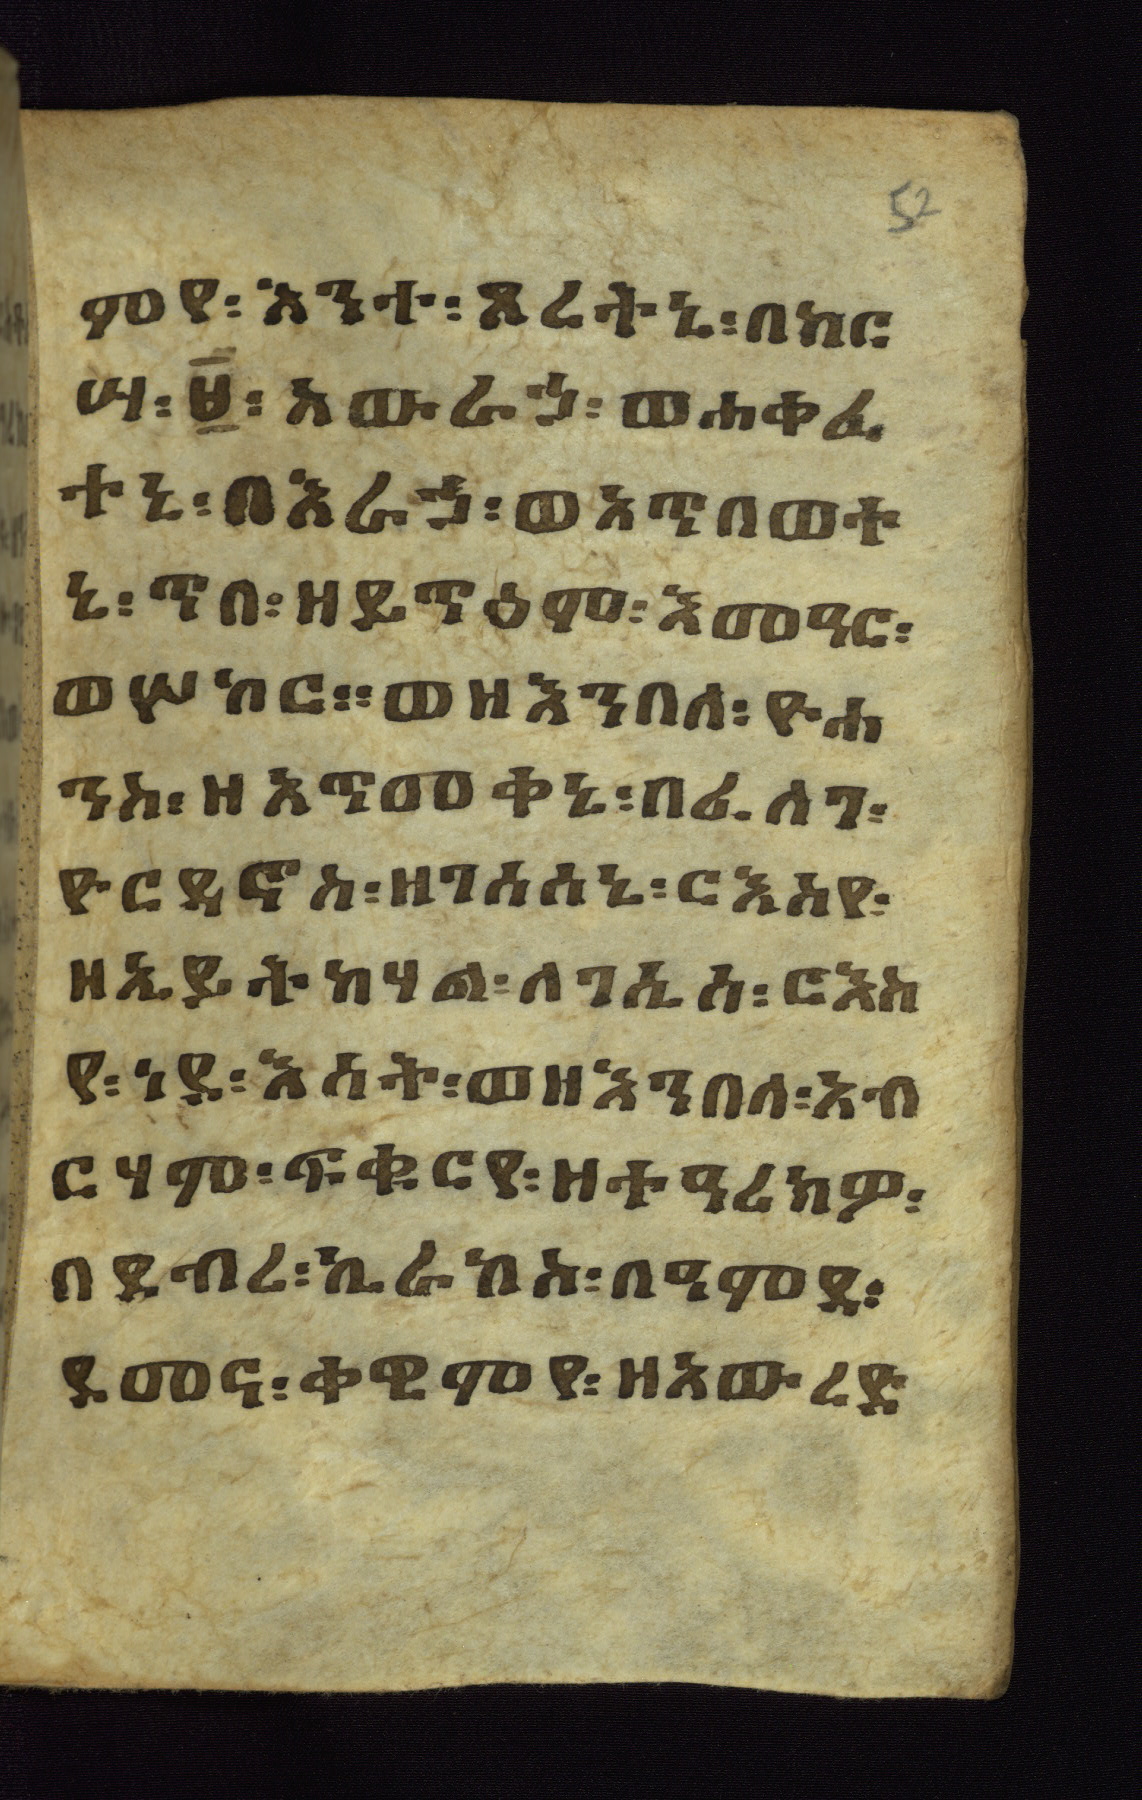 52
ምየ፡ እንተ፡ ጾረትኒ፡ በከር
ሣ፡ ፱፡ አውራኃ፡ ወሐቀፈ
ተኒ፡ በእራኃ፡ ወአጥበወተ
ኒ፡ ጥበ፡ ዘይጥዕም፡ እመዓር፡
ወሦከር። ወዘእንበለ፡ ዮሐ
ንስ፡ ዘአጥመቀኒ፡ በፈለገ፡
ዮርዳኖስ፡ ዘገሰሰኒ፡ ርእስየ፡
ዘኢይትከሃል፡ ለገሲስ፡ ርእስ
የ፡ ነደ፡ እሳት፡ ወዘእንበለ፡ አብ
ርሃም፡ ፍቁርየ፡ ዘተዓረክዎ፡
በደብረ፡ ኪራክስ፡ በዓምደ፡
ደመና፡ ቀዊምየ፡ ዘአውረድ